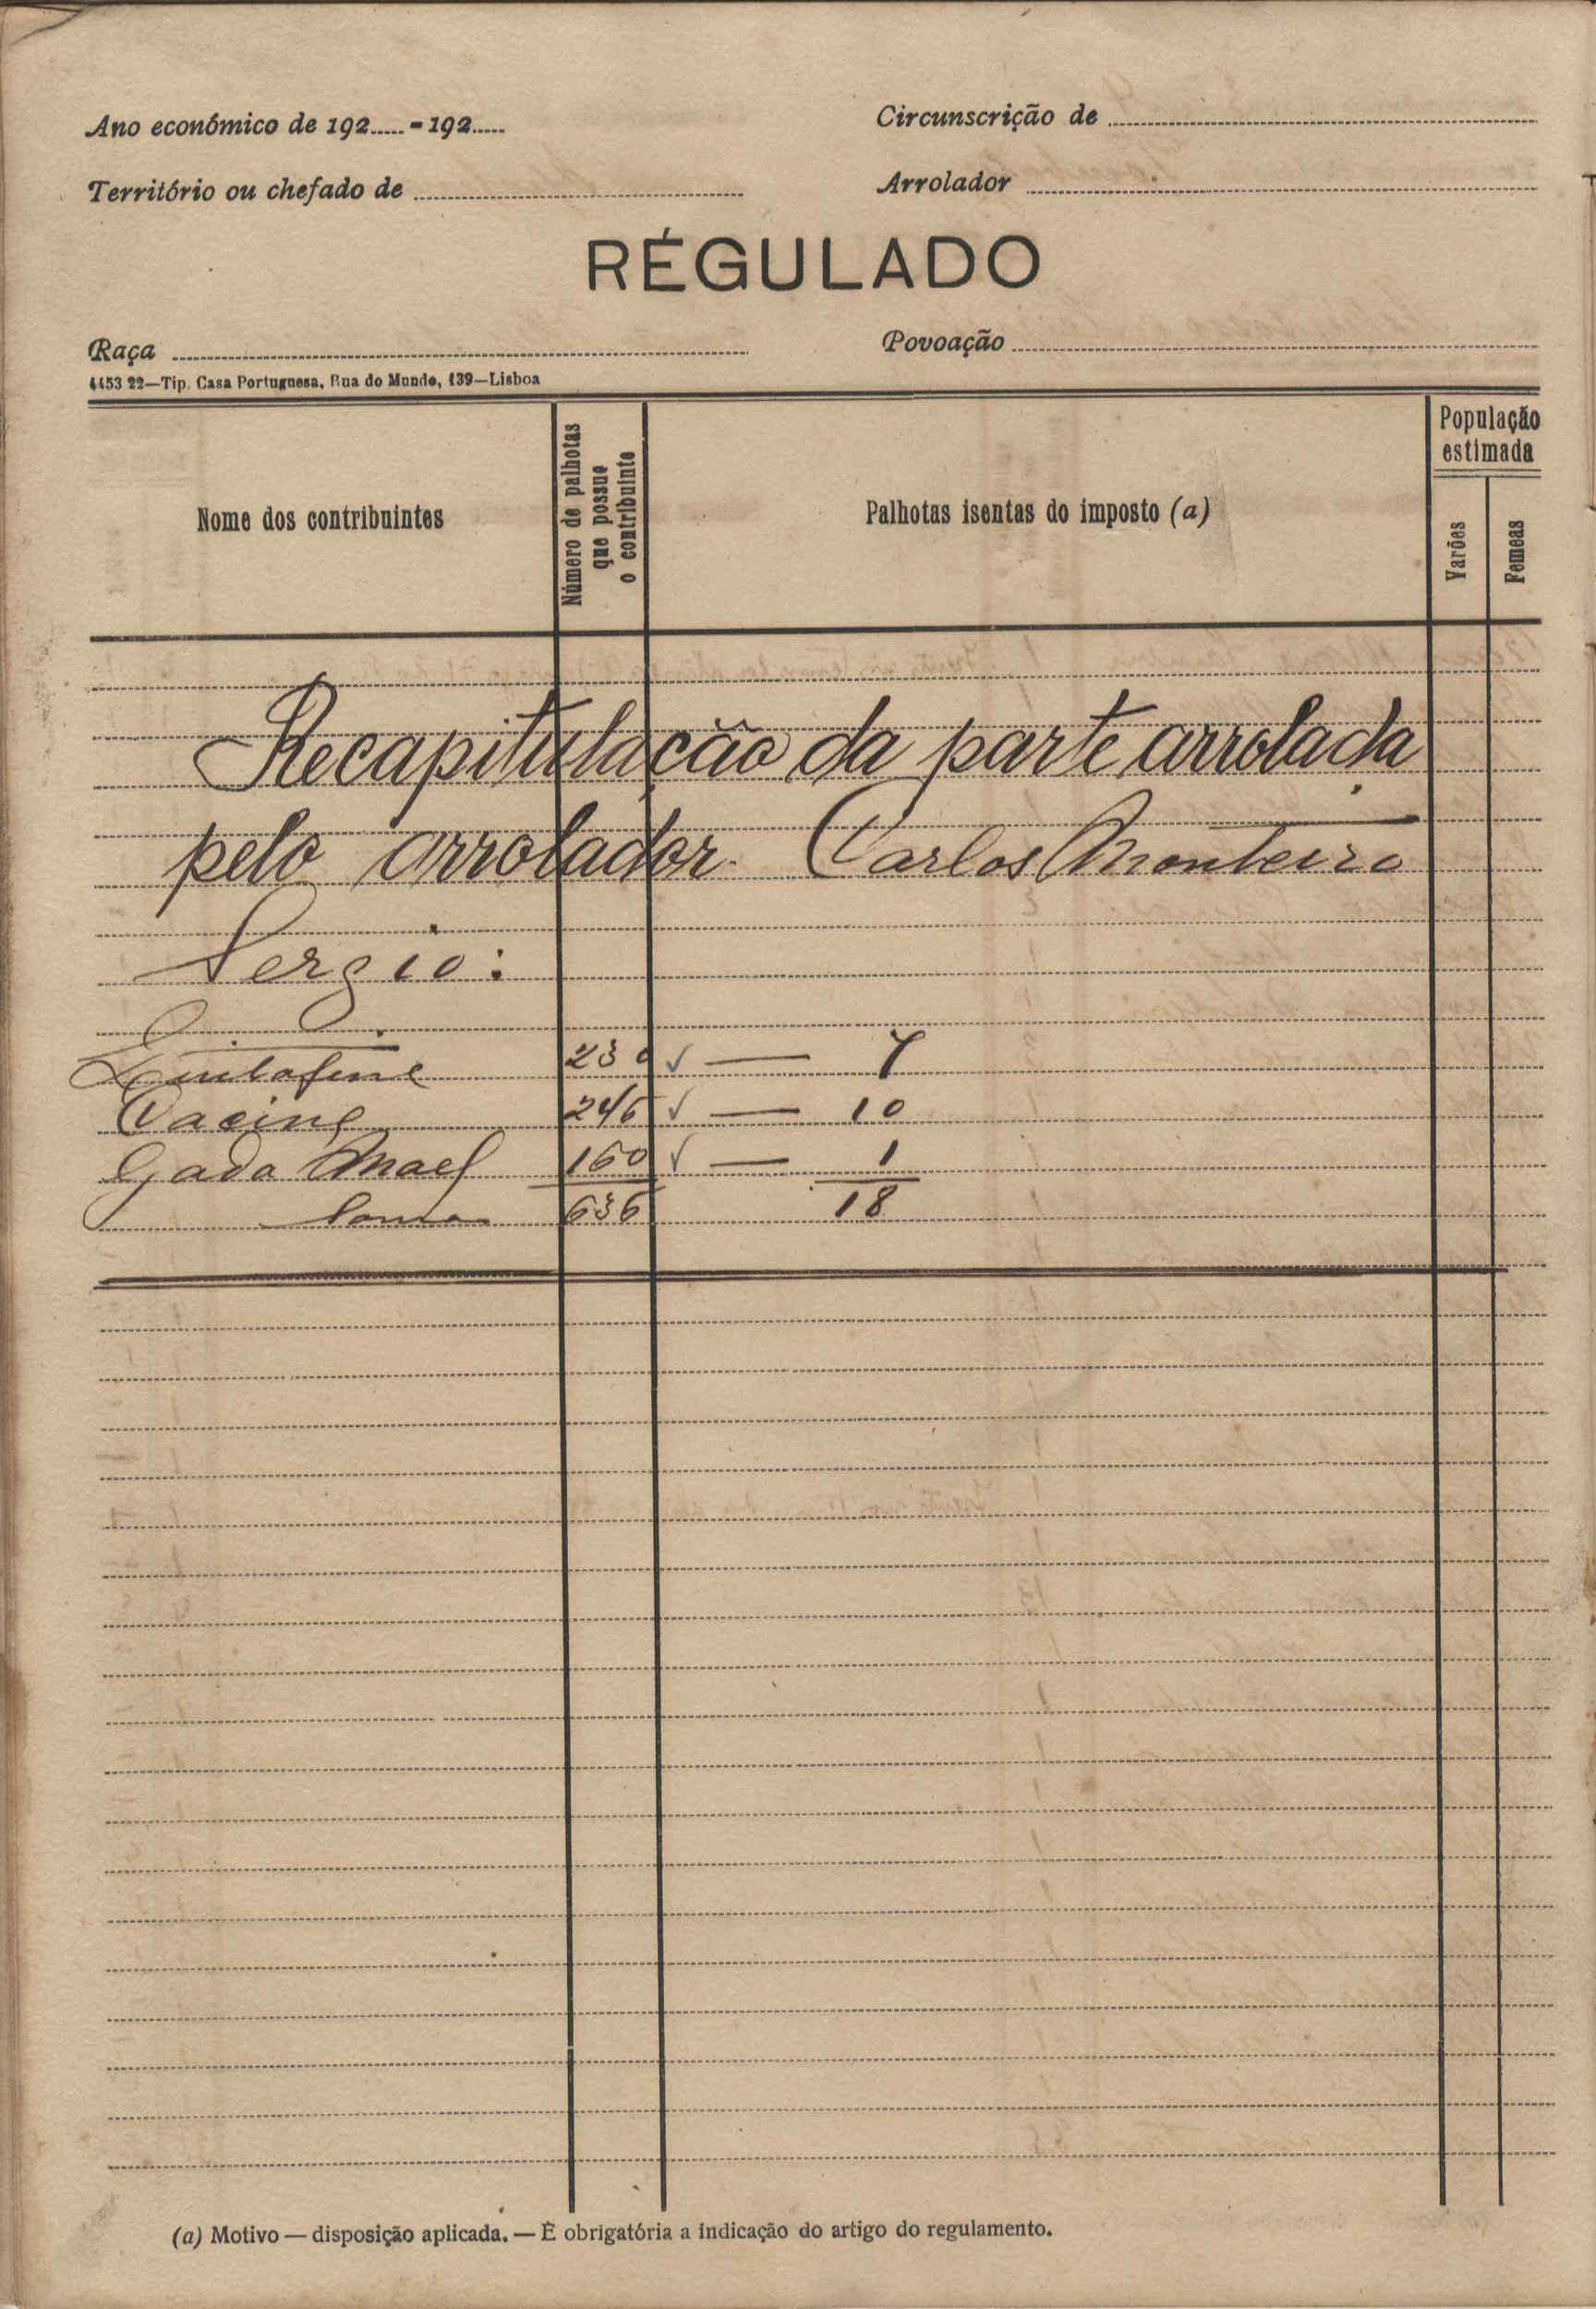 Ano económico de 192..... - 192.....
Circunscrição de
Território ou chefado de
Arrolador
RÉGULADO
Raça
Povoação
4453 22—Tip. Casa Portuguesa, Rua do Mundo, 139—Lisboa
Nome dos contribuintes
Número de palhotas que possue o contribuinte
Palhotas isentas do imposto (a)
População estimada
Varões
Femeas
Recapitulação da parte arrolada
pelo arrolador Carlos Monteiro
Sergio:
230 ✓ — 7
246 ✓ — 10
Gada Mael 160 ✓ — 1
Soma 636 18
(a) Motivo — disposição aplicada. — É obrigatória a indicação do artigo do regulamento.